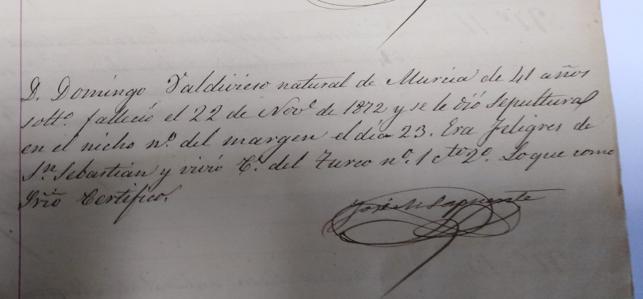 D. Domingo Valdivieso natural de Murcia de 41 años
soltº. falleció el 22 de Novᵉ de 1872 y se le dió sepultura
en el nicho nº. del margen el dia 23. Era feligres de
Sⁿ. Sebastian y vivió C. del Turco nº. 1 ctº 2º. Lo que como
Certifico.
José M